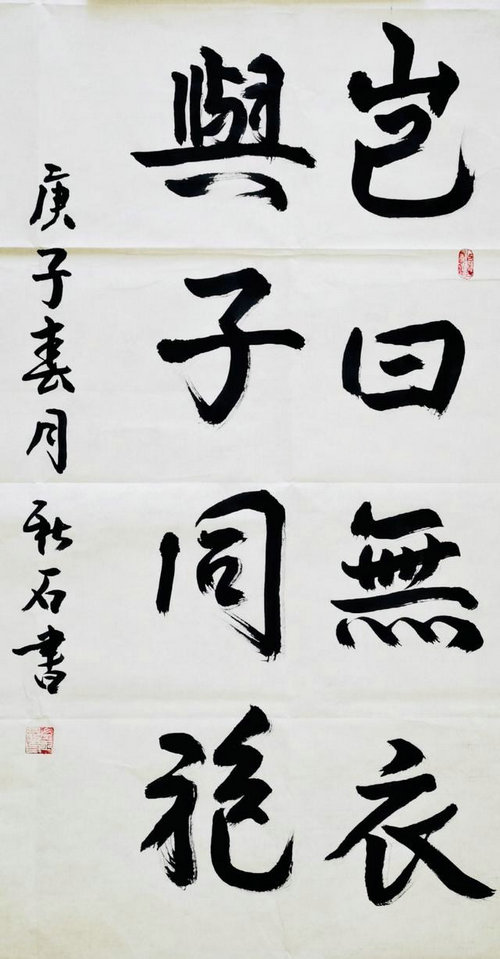 豈曰無衣
與子同袍
庚子春月 秋石書